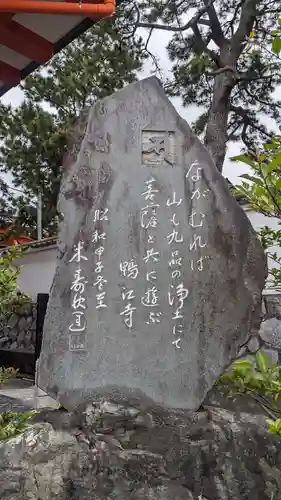 ながむれば
山も九品の浄土にて
菩薩と共に遊ぶ
鴨江寺
昭和甲子至
米寿